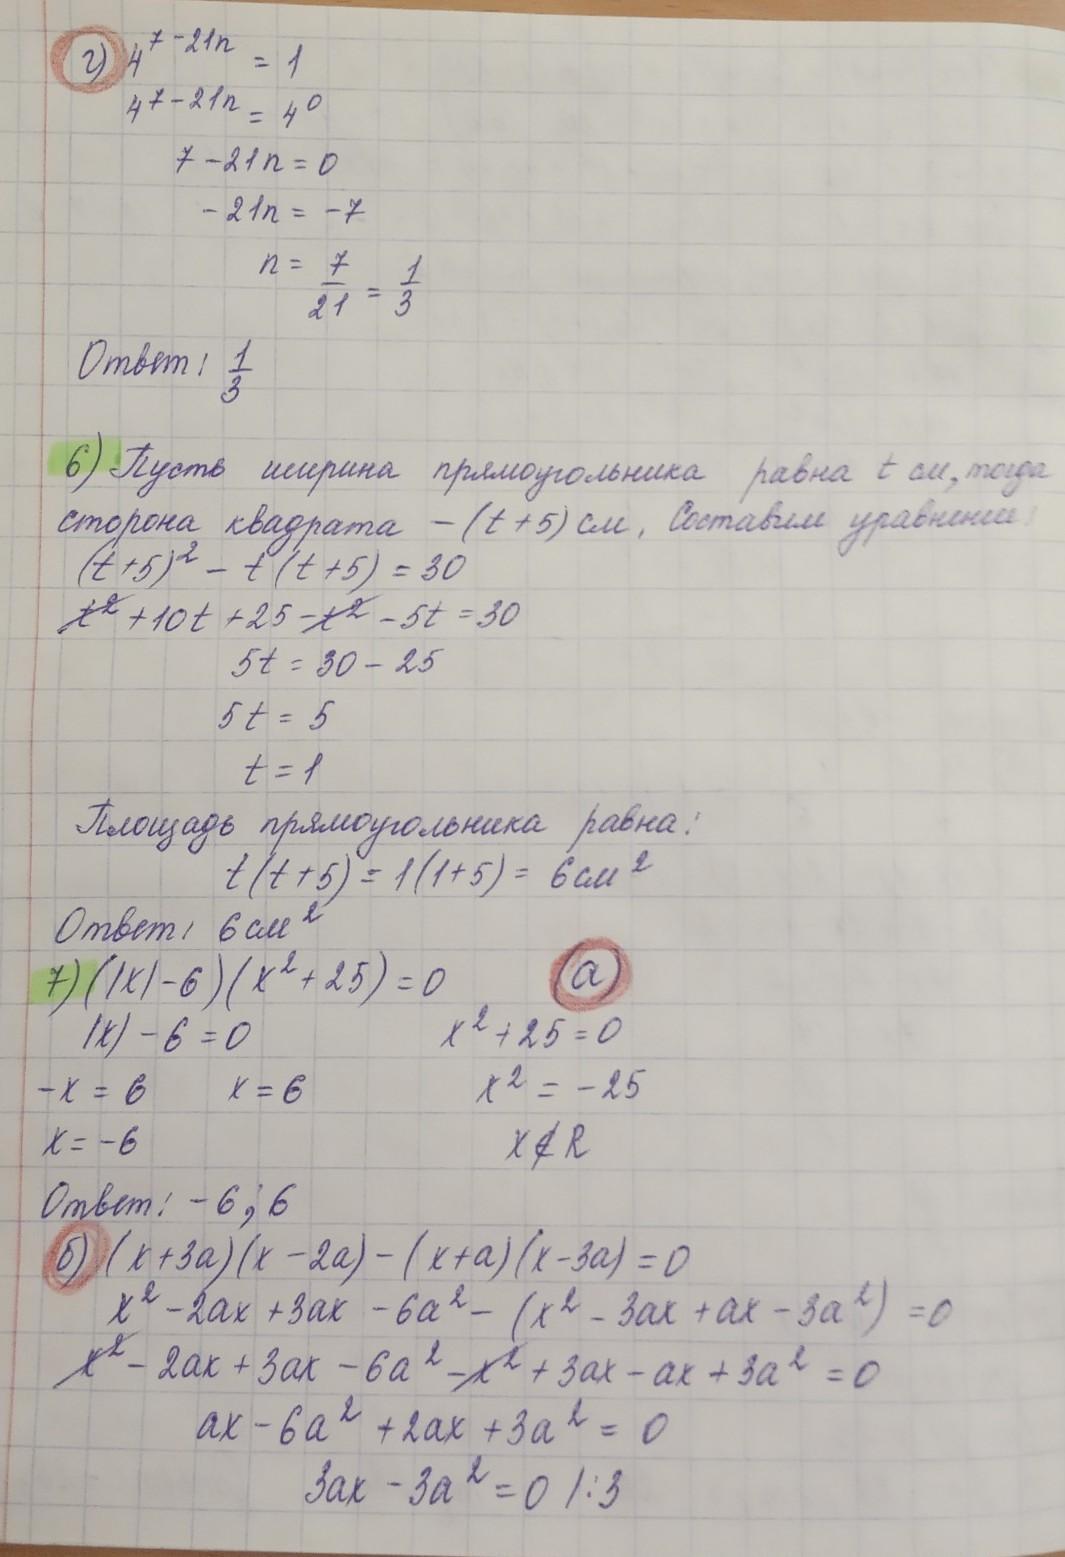 г) 4^{7-21n} = 1
4^{7-21n} = 4^0
7 - 21n = 0
- 21n = -7
n = 7/21 = 1/3
Ответ: 1/3
6) Пусть ширина прямоугольника равна t см, тогда
сторона квадрата - (t+5) см. Составим уравнение:
(t+5)^2 - t(t+5) = 30
t^2 + 10t + 25 - t^2 - 5t = 30
5t = 30 - 25
5t = 5
t = 1
Площадь прямоугольника равна:
t(t+5) = 1(1+5) = 6 см^2
Ответ: 6 см^2
7) (|x| - 6)(x^2 + 25) = 0 а)
|x| - 6 = 0 x^2 + 25 = 0
-x = 6 x = 6 x^2 = -25
x = -6 x ∉ R
Ответ: -6; 6
б) (x+3a)(x-2a) - (x+a)(x-3a) = 0
x^2 - 2ax + 3ax - 6a^2 - (x^2 - 3ax + ax - 3a^2) = 0
x^2 - 2ax + 3ax - 6a^2 - x^2 + 3ax - ax + 3a^2 = 0
ax - 6a^2 + 2ax + 3a^2 = 0
3ax - 3a^2 = 0 /:3